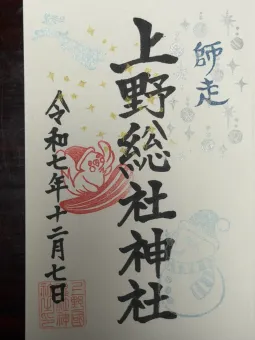 師走
上野総社神社
令和七年十二月七日